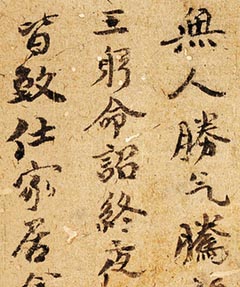 無人勝气騰
三躬命詔終夜
皆致仕家居